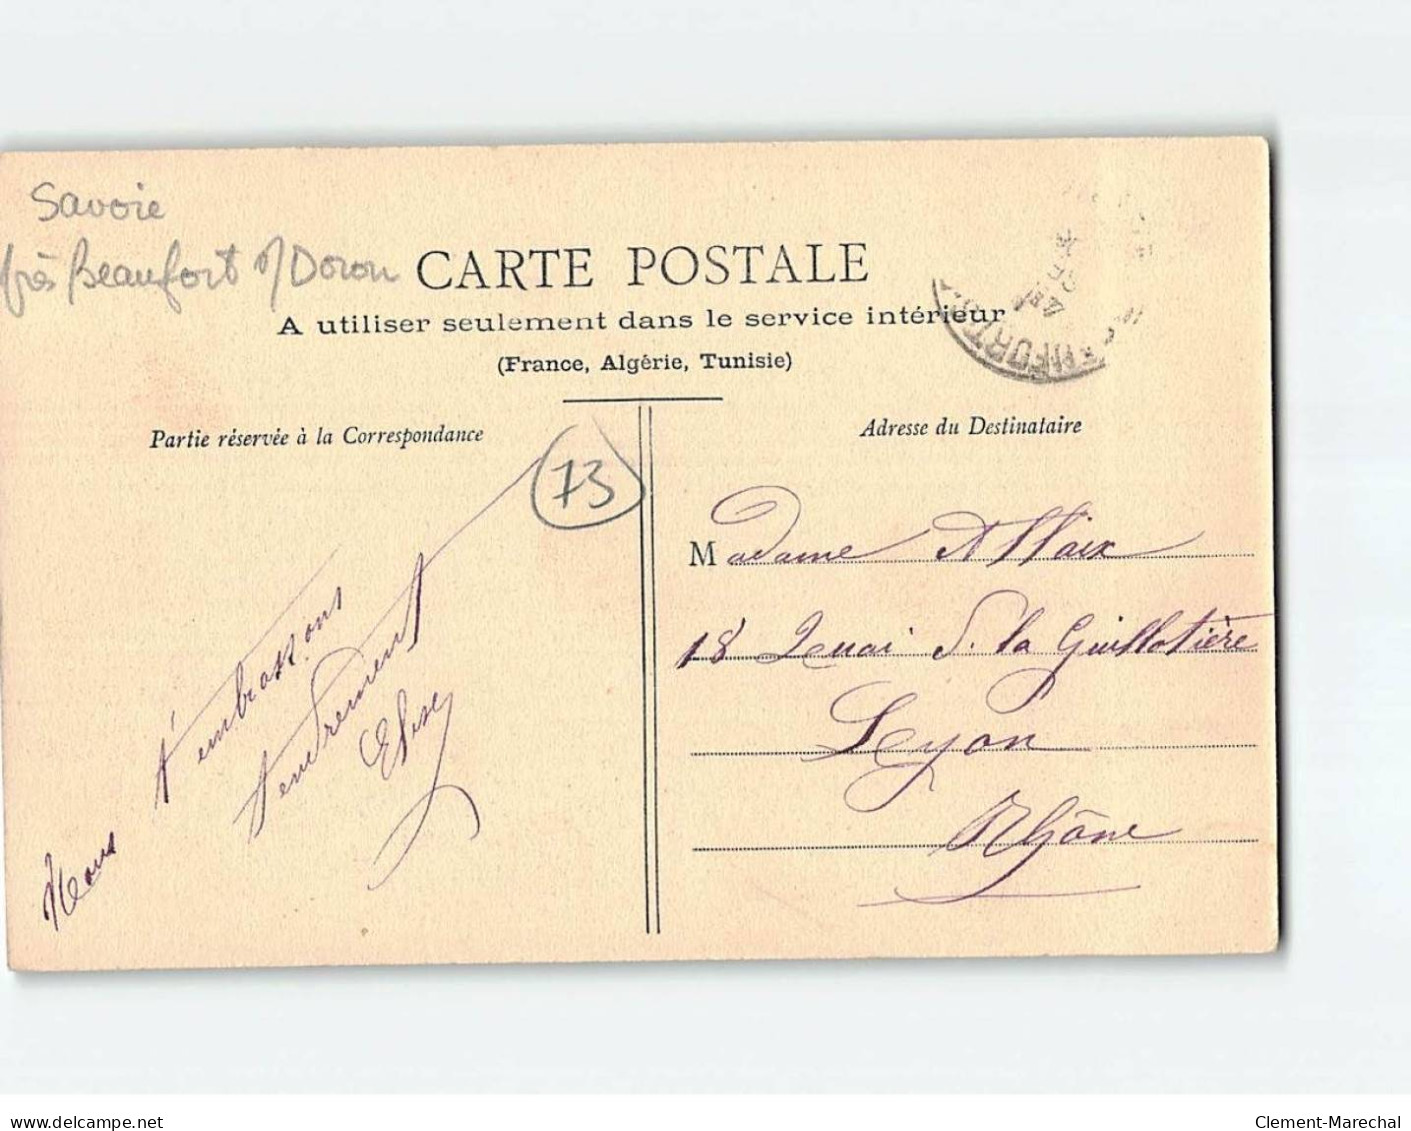 Savoie
près Beaufort s/ Doron
CARTE POSTALE
A utiliser seulement dans le service intérieur
(France, Algérie, Tunisie)
Partie réservée à la Correspondance
Adresse du Destinataire
73
Nous
t'embrassons
tendrement
Elise
Madame Allaix
18 Quai d. la Guillotière
Lyon
Rhône
www.delcampe.net
Clement-Marechal